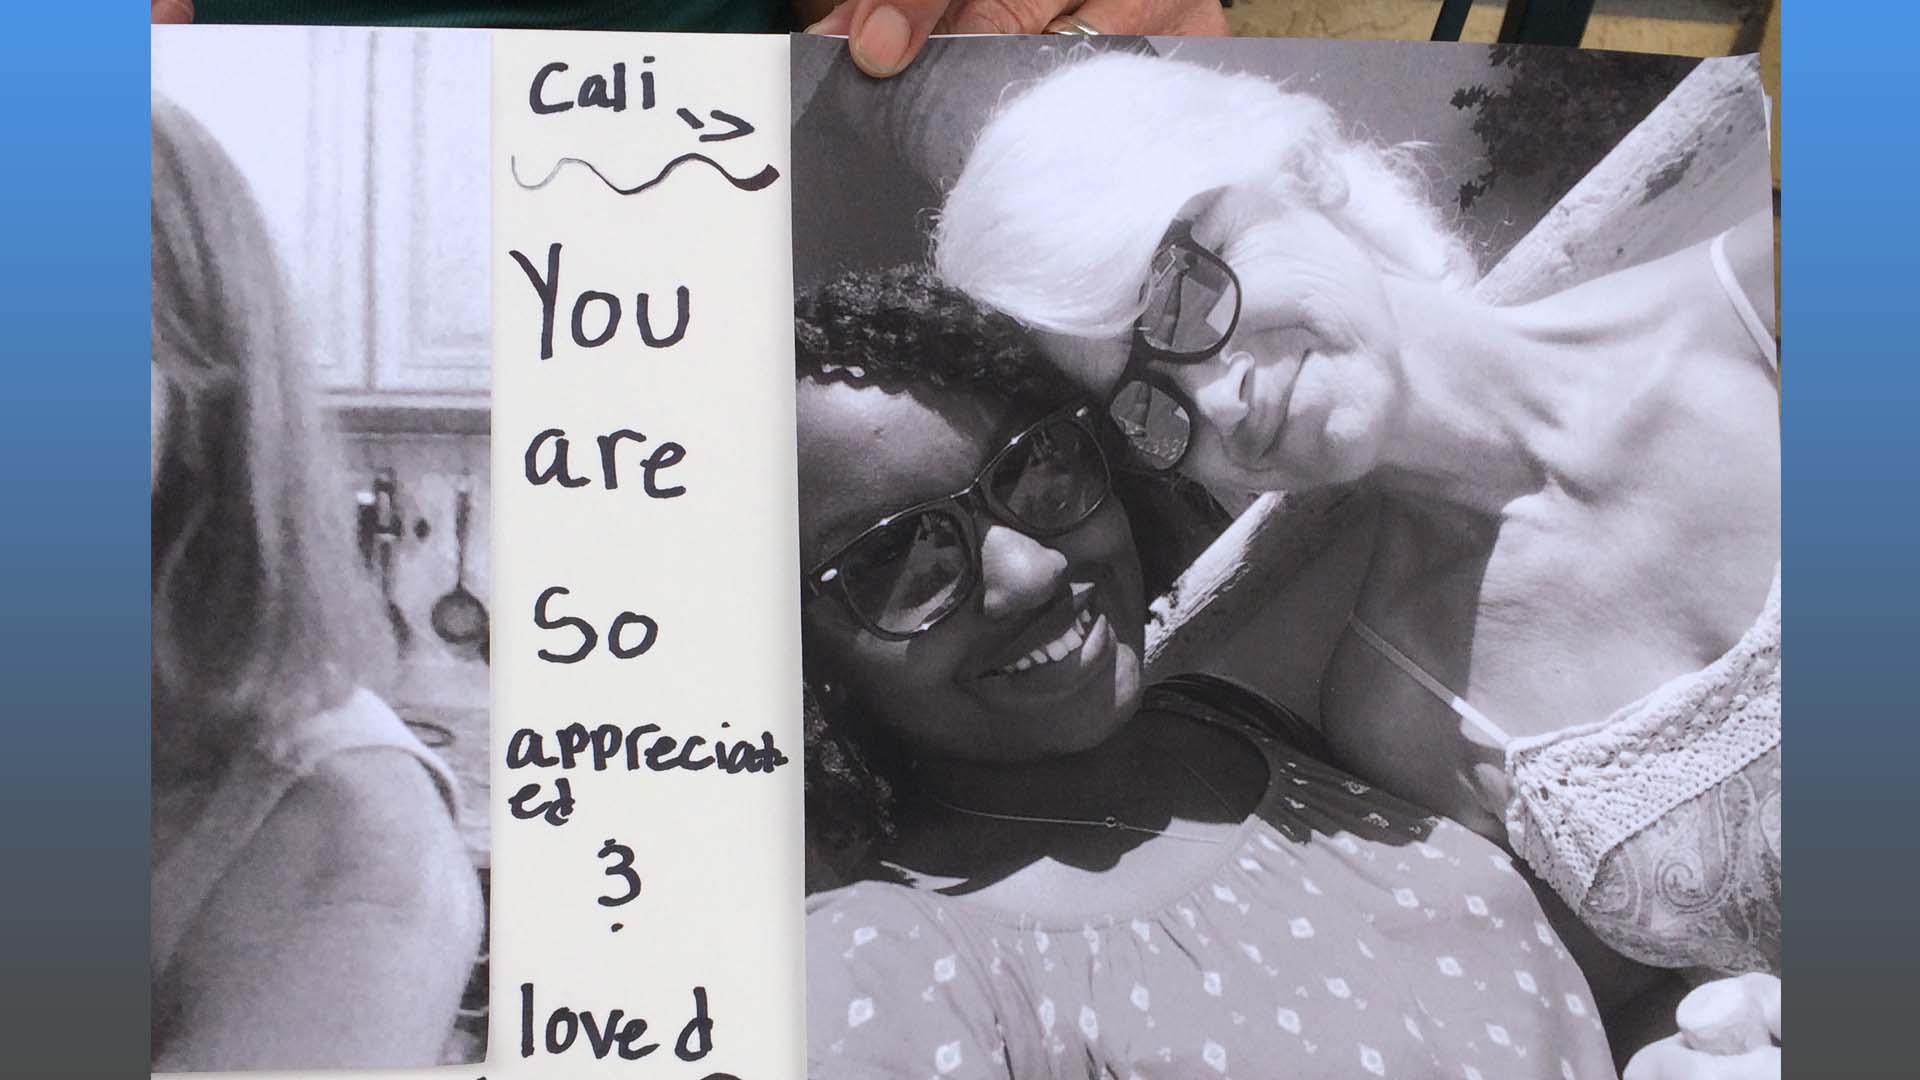 Cali ->
You
are
So
appreciat
ed
&
loved